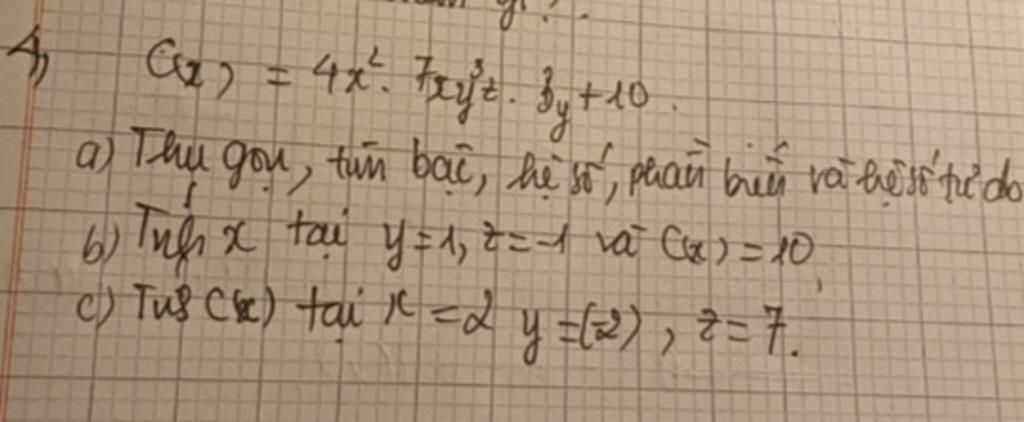 4,
C(x) = 4x². 7xy³z. 3y + 10.
a) Thu gọn, tìm bậc, hệ số, phần biến và hệ số tự do
b) Tính x tại y=1, z=-1 và C(x) = 10,
c) Tính C(x) tại x = 2 y = (-2), z = 7.